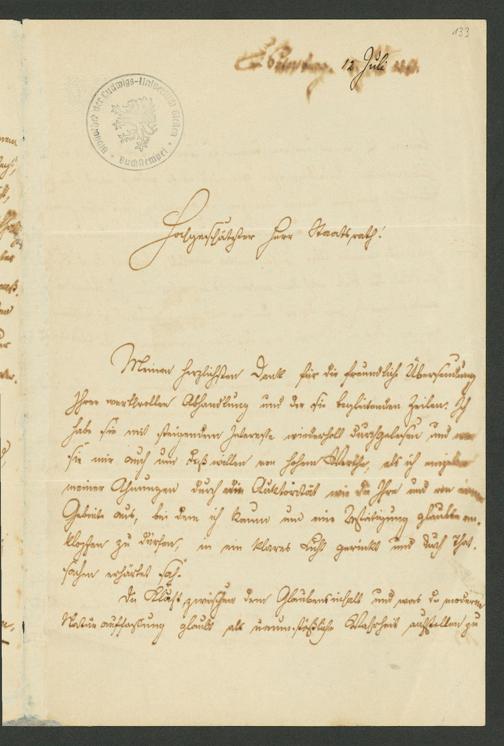 133
15 Juli
Eigentum der Ludwigs-Universität Gießen
Buchstempel
Hochgeschätzter Herr Staatsrath!
Meinen herzlichsten Dank für die freundliche Übersendung
Ihrer werthvollen Abhandlung und der sie begleitenden Zeilen. Ich
habe sie mit steigendem Interesse wiederholt durchgelesen und
sie mir auch um deß willen von hohem Werthe, als ich
meiner Ahnungen durch eine Auktorität wie die Ihre und von
Gebiete aus, bei dem ich kaum um eine Bestätigung glaubte an-
klopfen zu dürfen, in ein klares Licht gerückt und durch That-
sachen erhärtet sah.
Die Kluft zwischen dem Glaubensinhalt und was die moderne
Naturauffassung glaubt als unumstößliche Wahrheit aufstellen zu